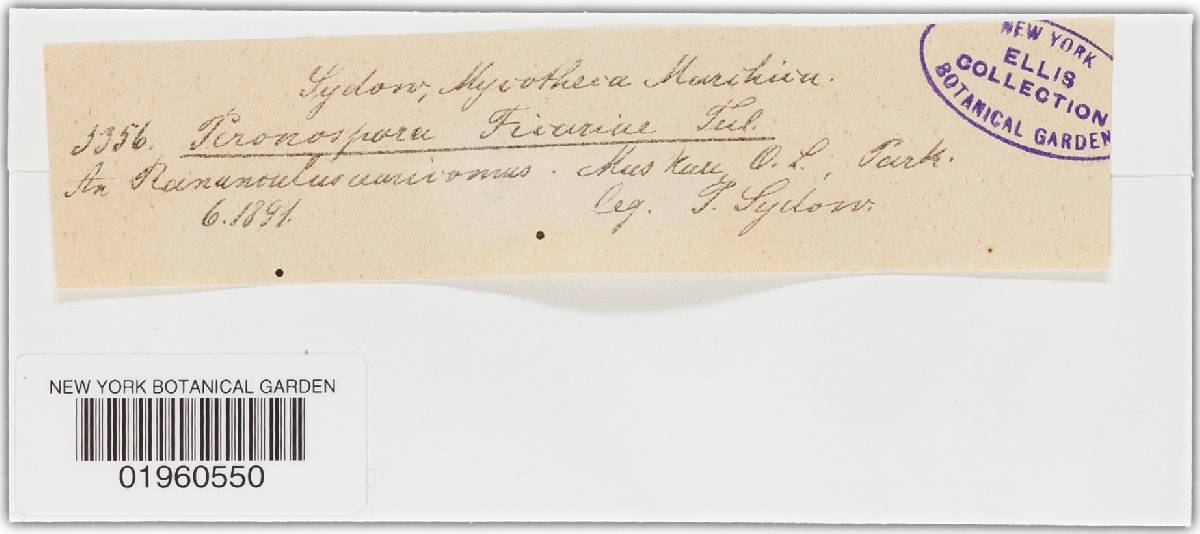 Sydow, Mycotheca Marchica.
3356. Peronospora Ficariae Tul.
An Ranunculus auricomus. Muskau, O. L., Park.
6.1891. leg. P. Sydow.
NEW YORK
ELLIS
COLLECTION
BOTANICAL GARDEN
NEW YORK BOTANICAL GARDEN
01960550